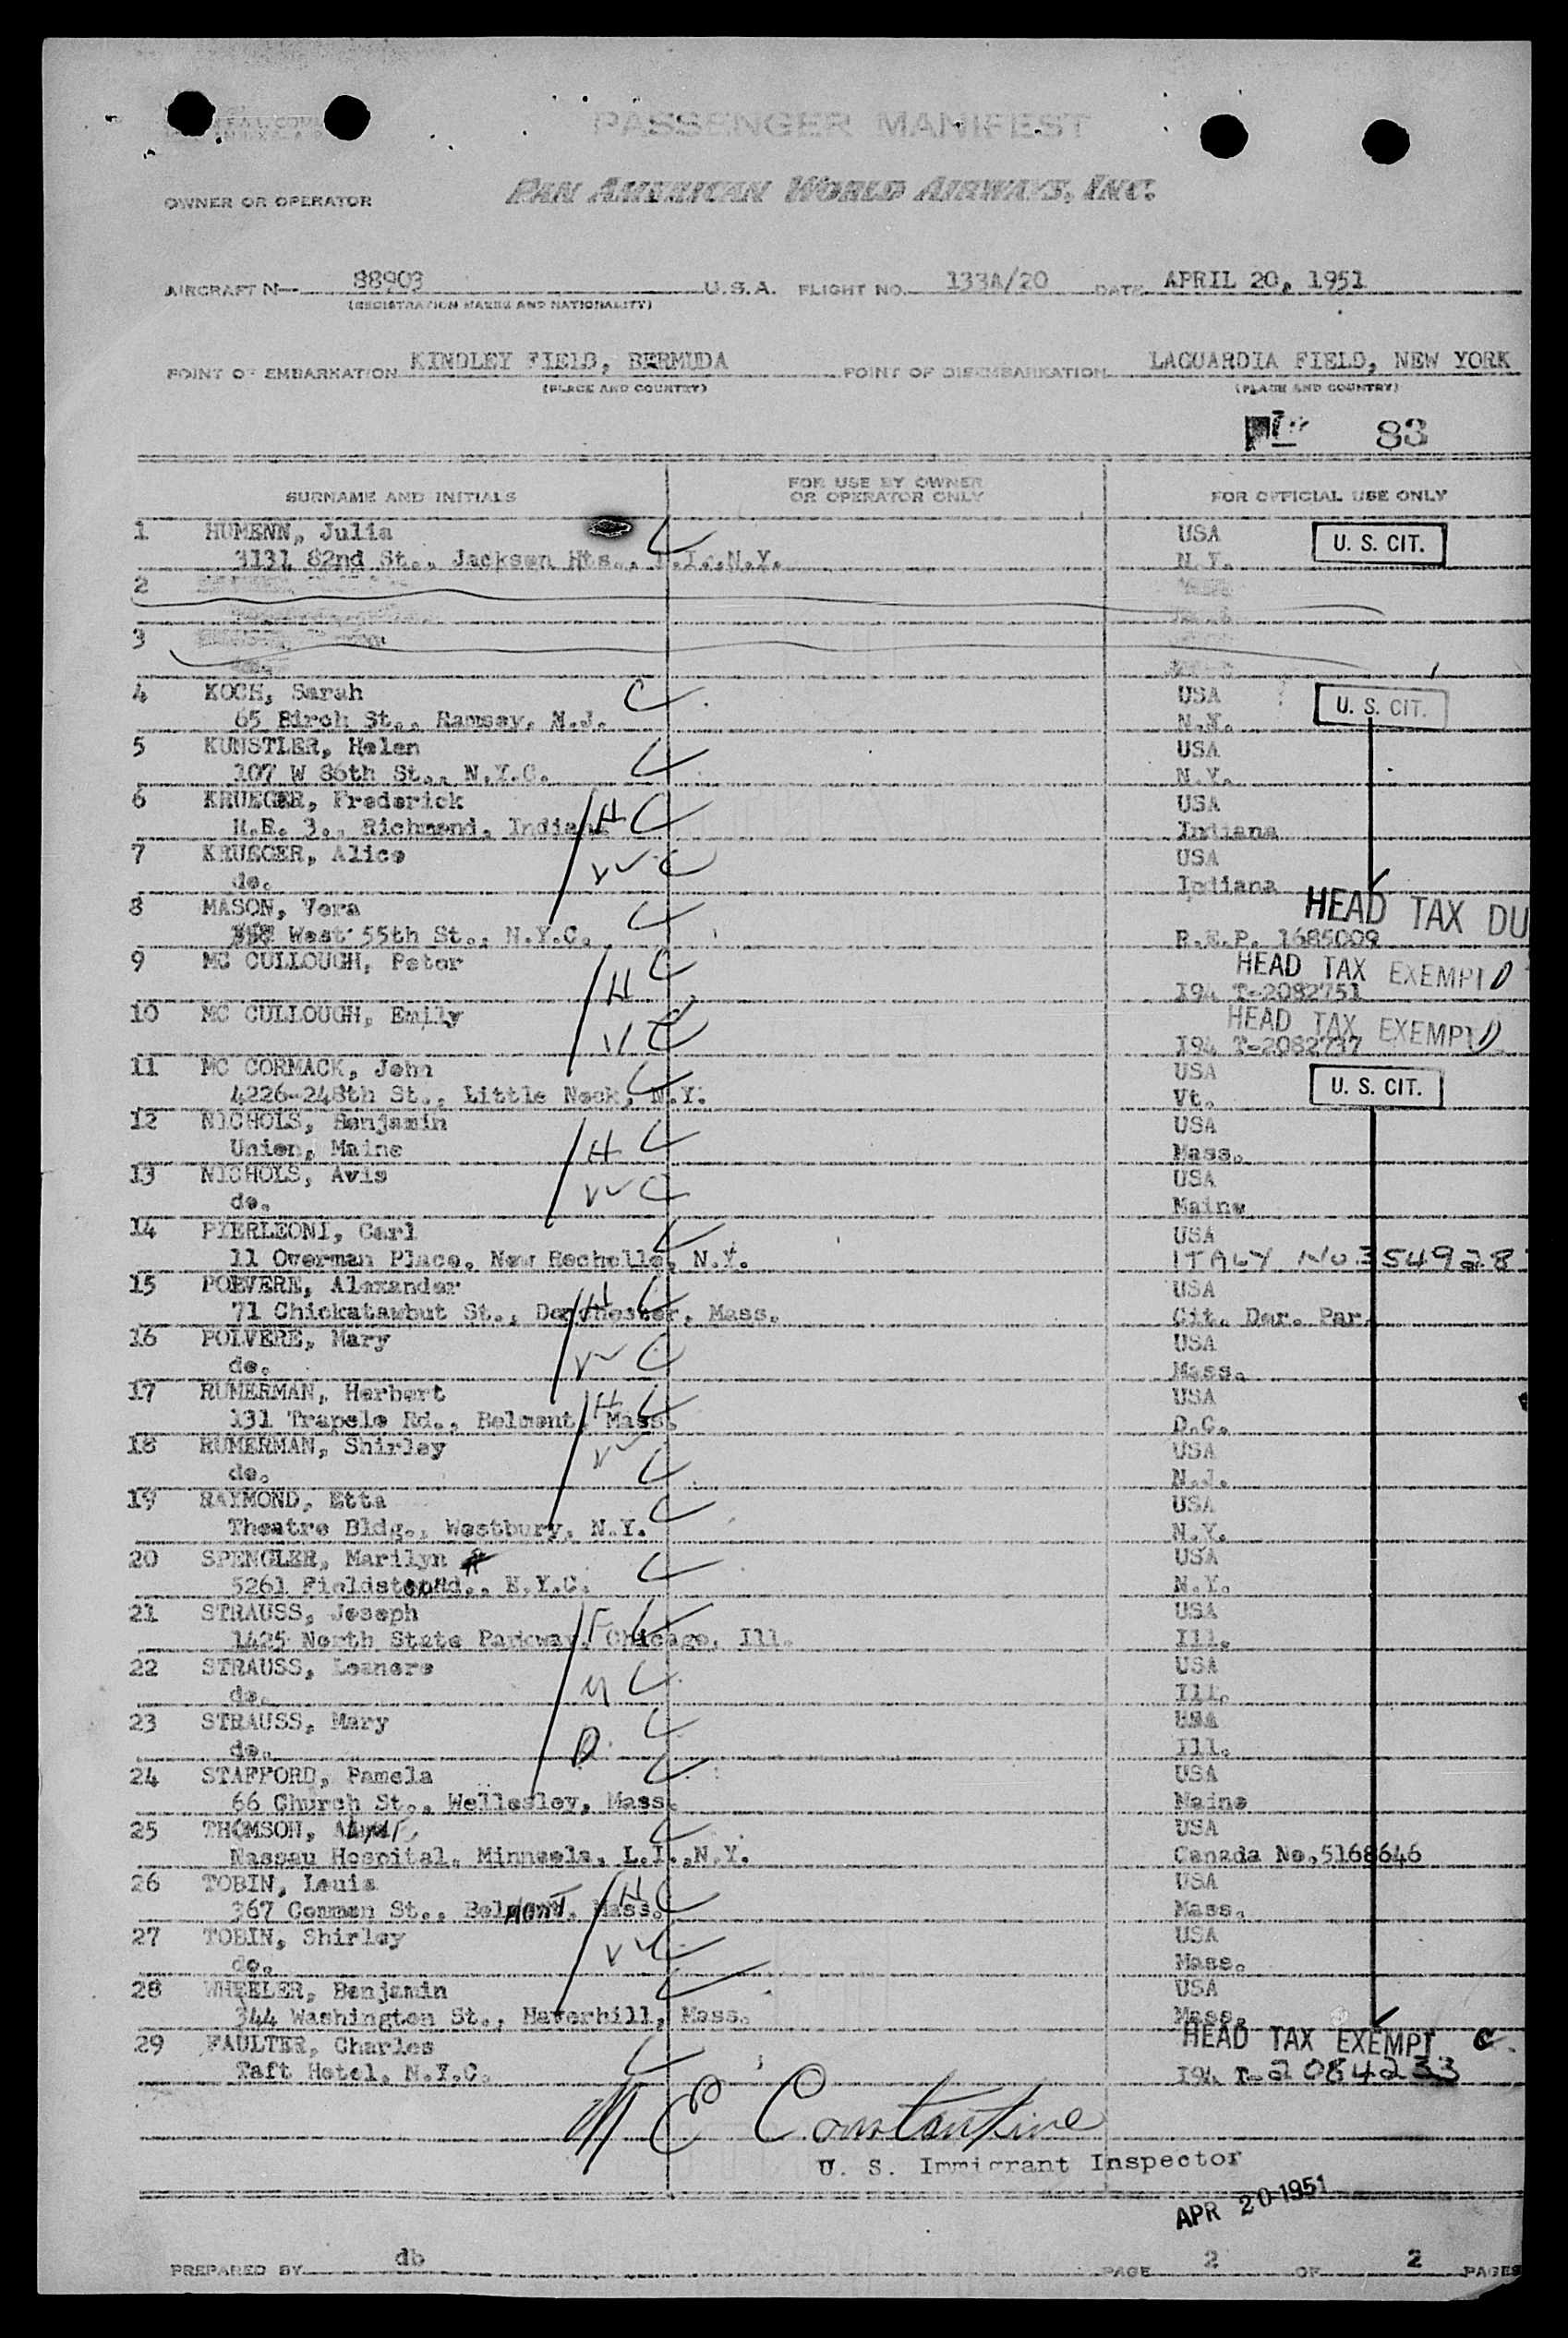 PASSENGER MANIFEST
OWNER OR OPERATOR PAN AMERICAN WORLD AIRWAYS, INC.
AIRCRAFT N— 88903 U.S.A. FLIGHT NO. 133A/20 DATE APRIL 20, 1951
(REGISTRATION MARKS AND NATIONALITY)
POINT OF EMBARKATION KINDLEY FIELD, BERMUDA POINT OF DISEMBARKATION LAGUARDIA FIELD, NEW YORK
(PLACE AND COUNTRY) (PLACE AND COUNTRY)
83
SURNAME AND INITIALS FOR USE BY OWNER OR OPERATOR ONLY FOR OFFICIAL USE ONLY
1 HUMENN, Julia C USA U. S. CIT.
3131 82nd St., Jackson Hts., L.I.,N.Y. N.Y.
2
3
do.
4 KOCH, Sarah C USA U. S. CIT.
65 Birch St., Ramsay, N.J. N.Y.
5 KUNSTLER, Helen C USA
107 W 86th St., N.Y.C. N.Y.
6 KRUEGER, Frederick H C USA
R.R. 3., Richmond, Indiana Indiana
7 KRUEGER, Alice W C USA
do. Indiana
8 MASON, Vera C HEAD TAX DU
West 55th St., N.Y.C. R.E.P. 1685009
9 MC CULLOUGH, Peter H C HEAD TAX EXEMPT
I94 T-2082751
10 MC CULLOUGH, Emily W C HEAD TAX EXEMPT
I94 T-2082737
11 MC CORMACK, John C USA U. S. CIT.
4226-248th St., Little Neck, N.Y. Vt.
12 NICHOLS, Benjamin H C USA
Union, Maine Mass.
13 NICHOLS, Avis W C USA
do. Maine
14 PIERLEONI, Carl C USA
11 Overman Place, New Rochelle, N.Y. ITALY No 3549287
15 POLVERE, Alexander H C USA
71 Chickatawbut St., Dorchester, Mass. Cit. Der. Par.
16 POLVERE, Mary W C USA
do. Mass.
17 RUMERMAN, Herbert H C USA
131 Trapelo Rd., Belmont, Mass. D.C.
18 RUMERMAN, Shirley W C USA
do. N.J.
19 RAYMOND, Etta C USA
Theatre Bldg., Westbury, N.Y. N.Y.
20 SPENGLER, Marilyn C USA
5261 Fieldston Rd., N.Y.C. N.Y.
21 STRAUSS, Joseph F C USA
1425 North State Parkway, Chicago, Ill. Ill.
22 STRAUSS, Leanore M C USA
do. Ill.
23 STRAUSS, Mary D C USA
do. Ill.
24 STAFFORD, Pamela C USA
66 Church St., Wellesley, Mass. Maine
25 THOMSON, C USA
Nassau Hospital, Minneola, L.I.,N.Y. Canada No.5168646
26 TOBIN, Louis H C USA
367 Common St., Belmont, Mass. Mass.
27 TOBIN, Shirley W C USA
do. Mass.
28 WHEELER, Benjamin C USA
344 Washington St., Haverhill, Mass. Mass.
29 FAULTER, Charles C HEAD TAX EXEMPT C
Taft Hotel, N.Y.C. I94 T-2084233
M E Constantine
U. S. Immigrant Inspector
APR 20 1951
PREPARED BY db PAGE 2 OF 2 PAGES